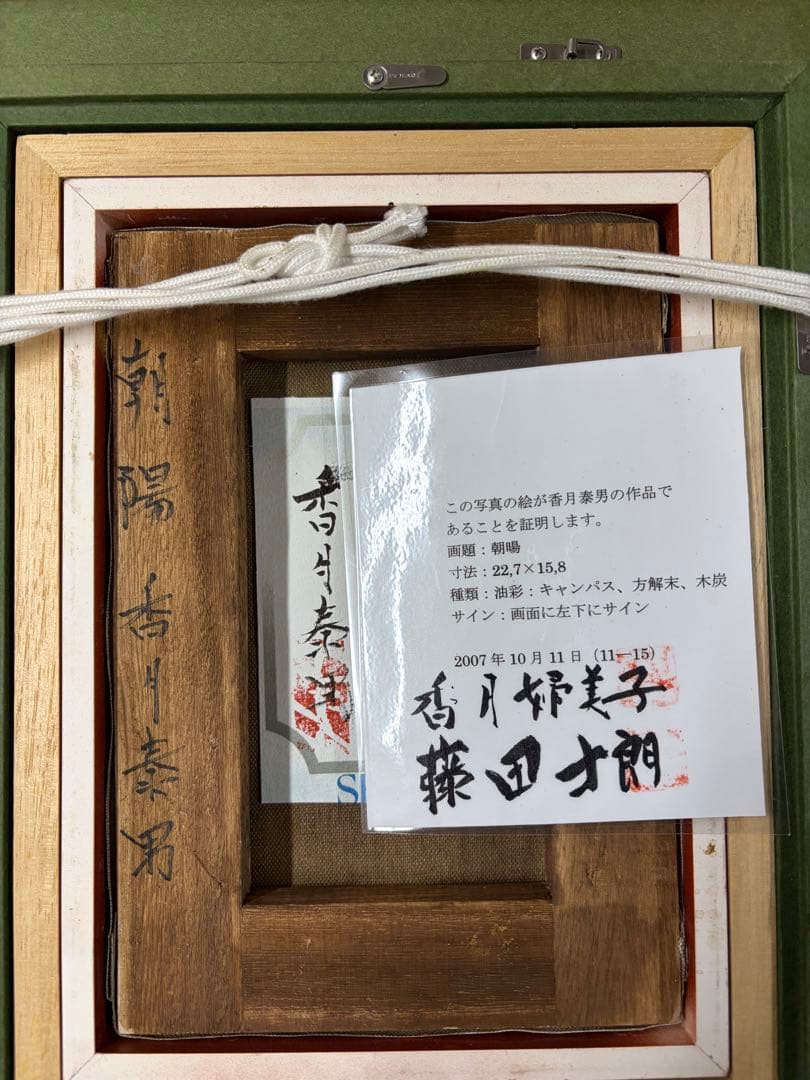 朝陽 香月泰男
香月泰男
この写真の絵が香月泰男の作品で
あることを証明します。
画題：朝暘
寸法：22,7×15,8
種類：油彩：キャンパス、方解末、木炭
サイン：画面に左下にサイン
2007年10月11日（11―15）
香月婦美子
藤田士朗